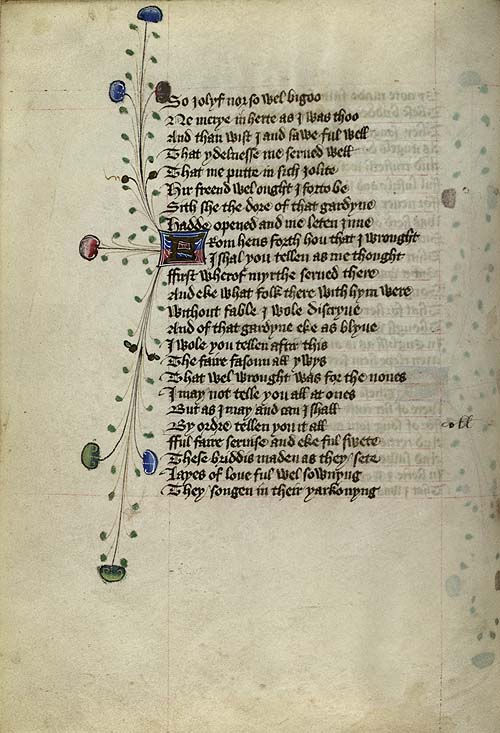 So Jolyf nor so wel bigoo
Ne merye in herte as J was thoo
And than wist J and sawe ful well
That ydelnesse me serued well
That me putte in sich Jolite
Hir freend wel ought J for to be
Sith she the dore of that gardyne
Hadde opened and me leten Jnne
From hens forth hou that J wrought
J shal you tellen as me thought
ffirst wherof myrthe serued there
And eke what folk there with hym were
Without fable J wole discryue
And of that gardyne eke as blyue
J wole you tellen aftir this
The faire fasoun all ywys
That wel wrought was for the nones
J may not telle you all at ones
But as J may and can J shall
By ordre tellen you it all
fful faire seruise and eke ful swete
These briddis maden as they sete
Layes of loue ful wel sownyng
They songen in their yarkonyng